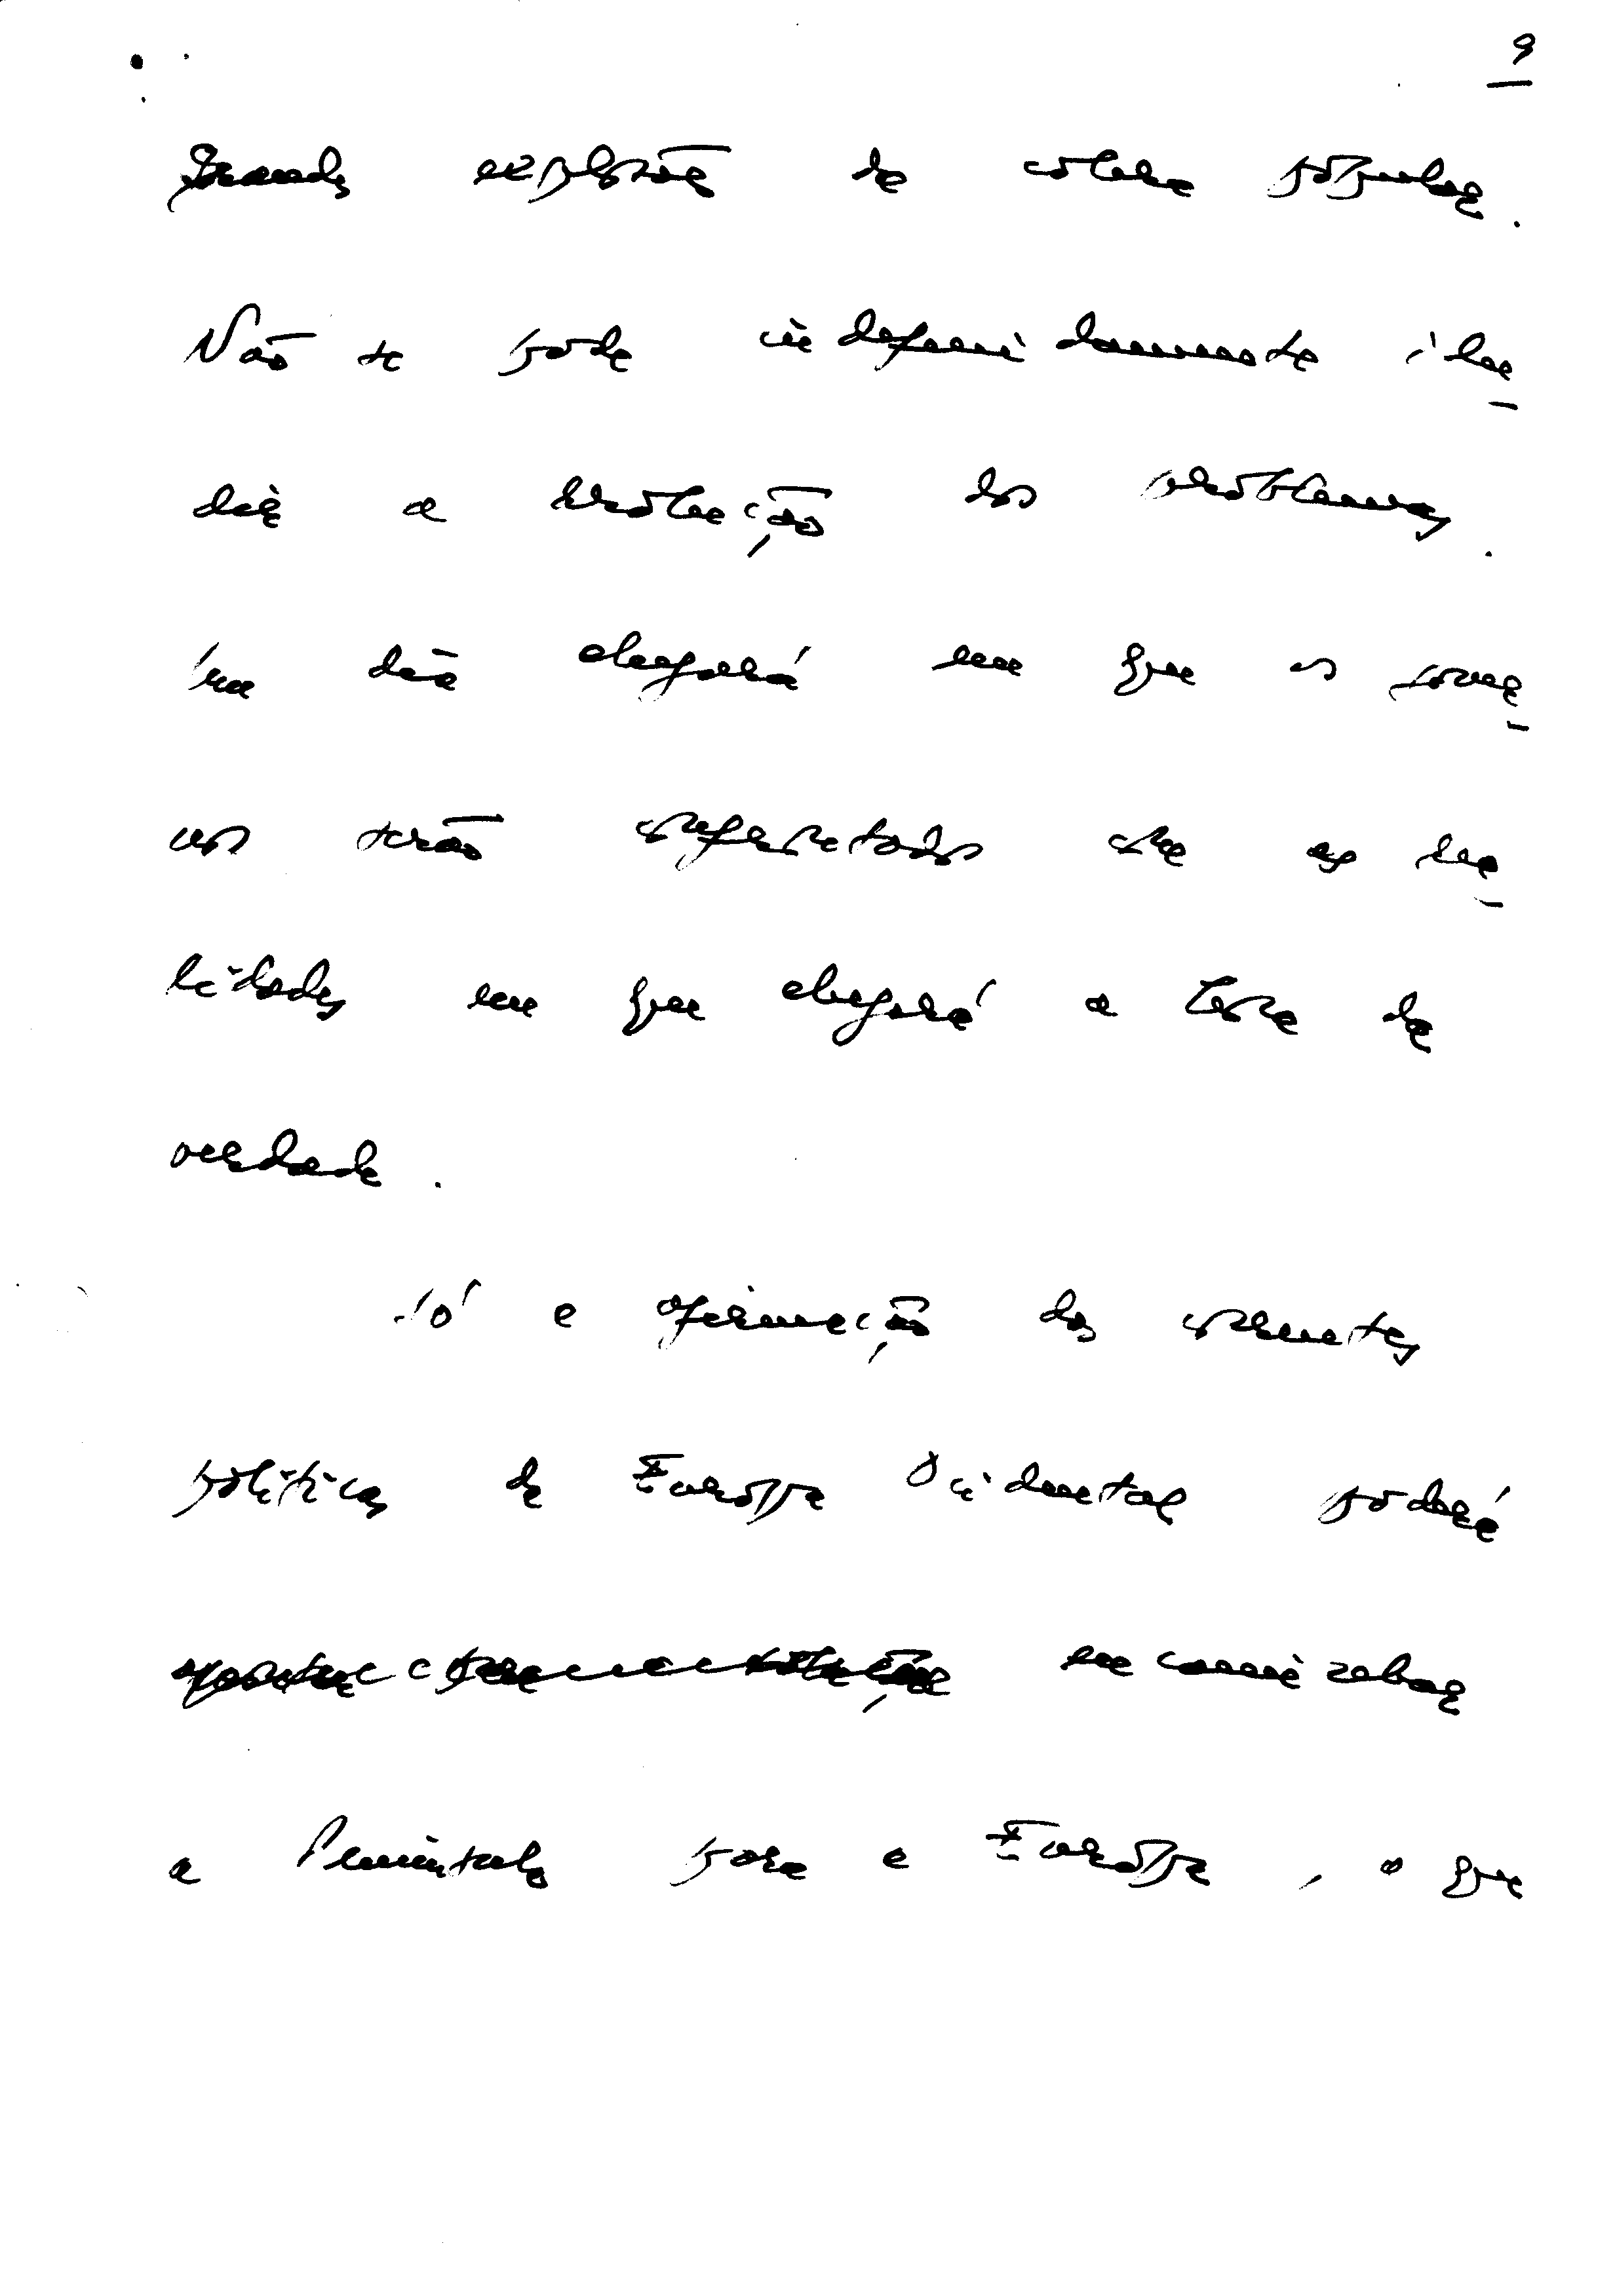 9
grandes explosões de cólera popular.
Não se pode indefinidamente ilu-
dir a resolução dos problemas.
Um dia chegará em que os povos
serão confrontados com as rea-
lidades em que chegará a hora da
verdade.
Só a afirmação das correntes
políticas da Europa Ocidental poderá
encaminhar
a Península para a Europa, o que